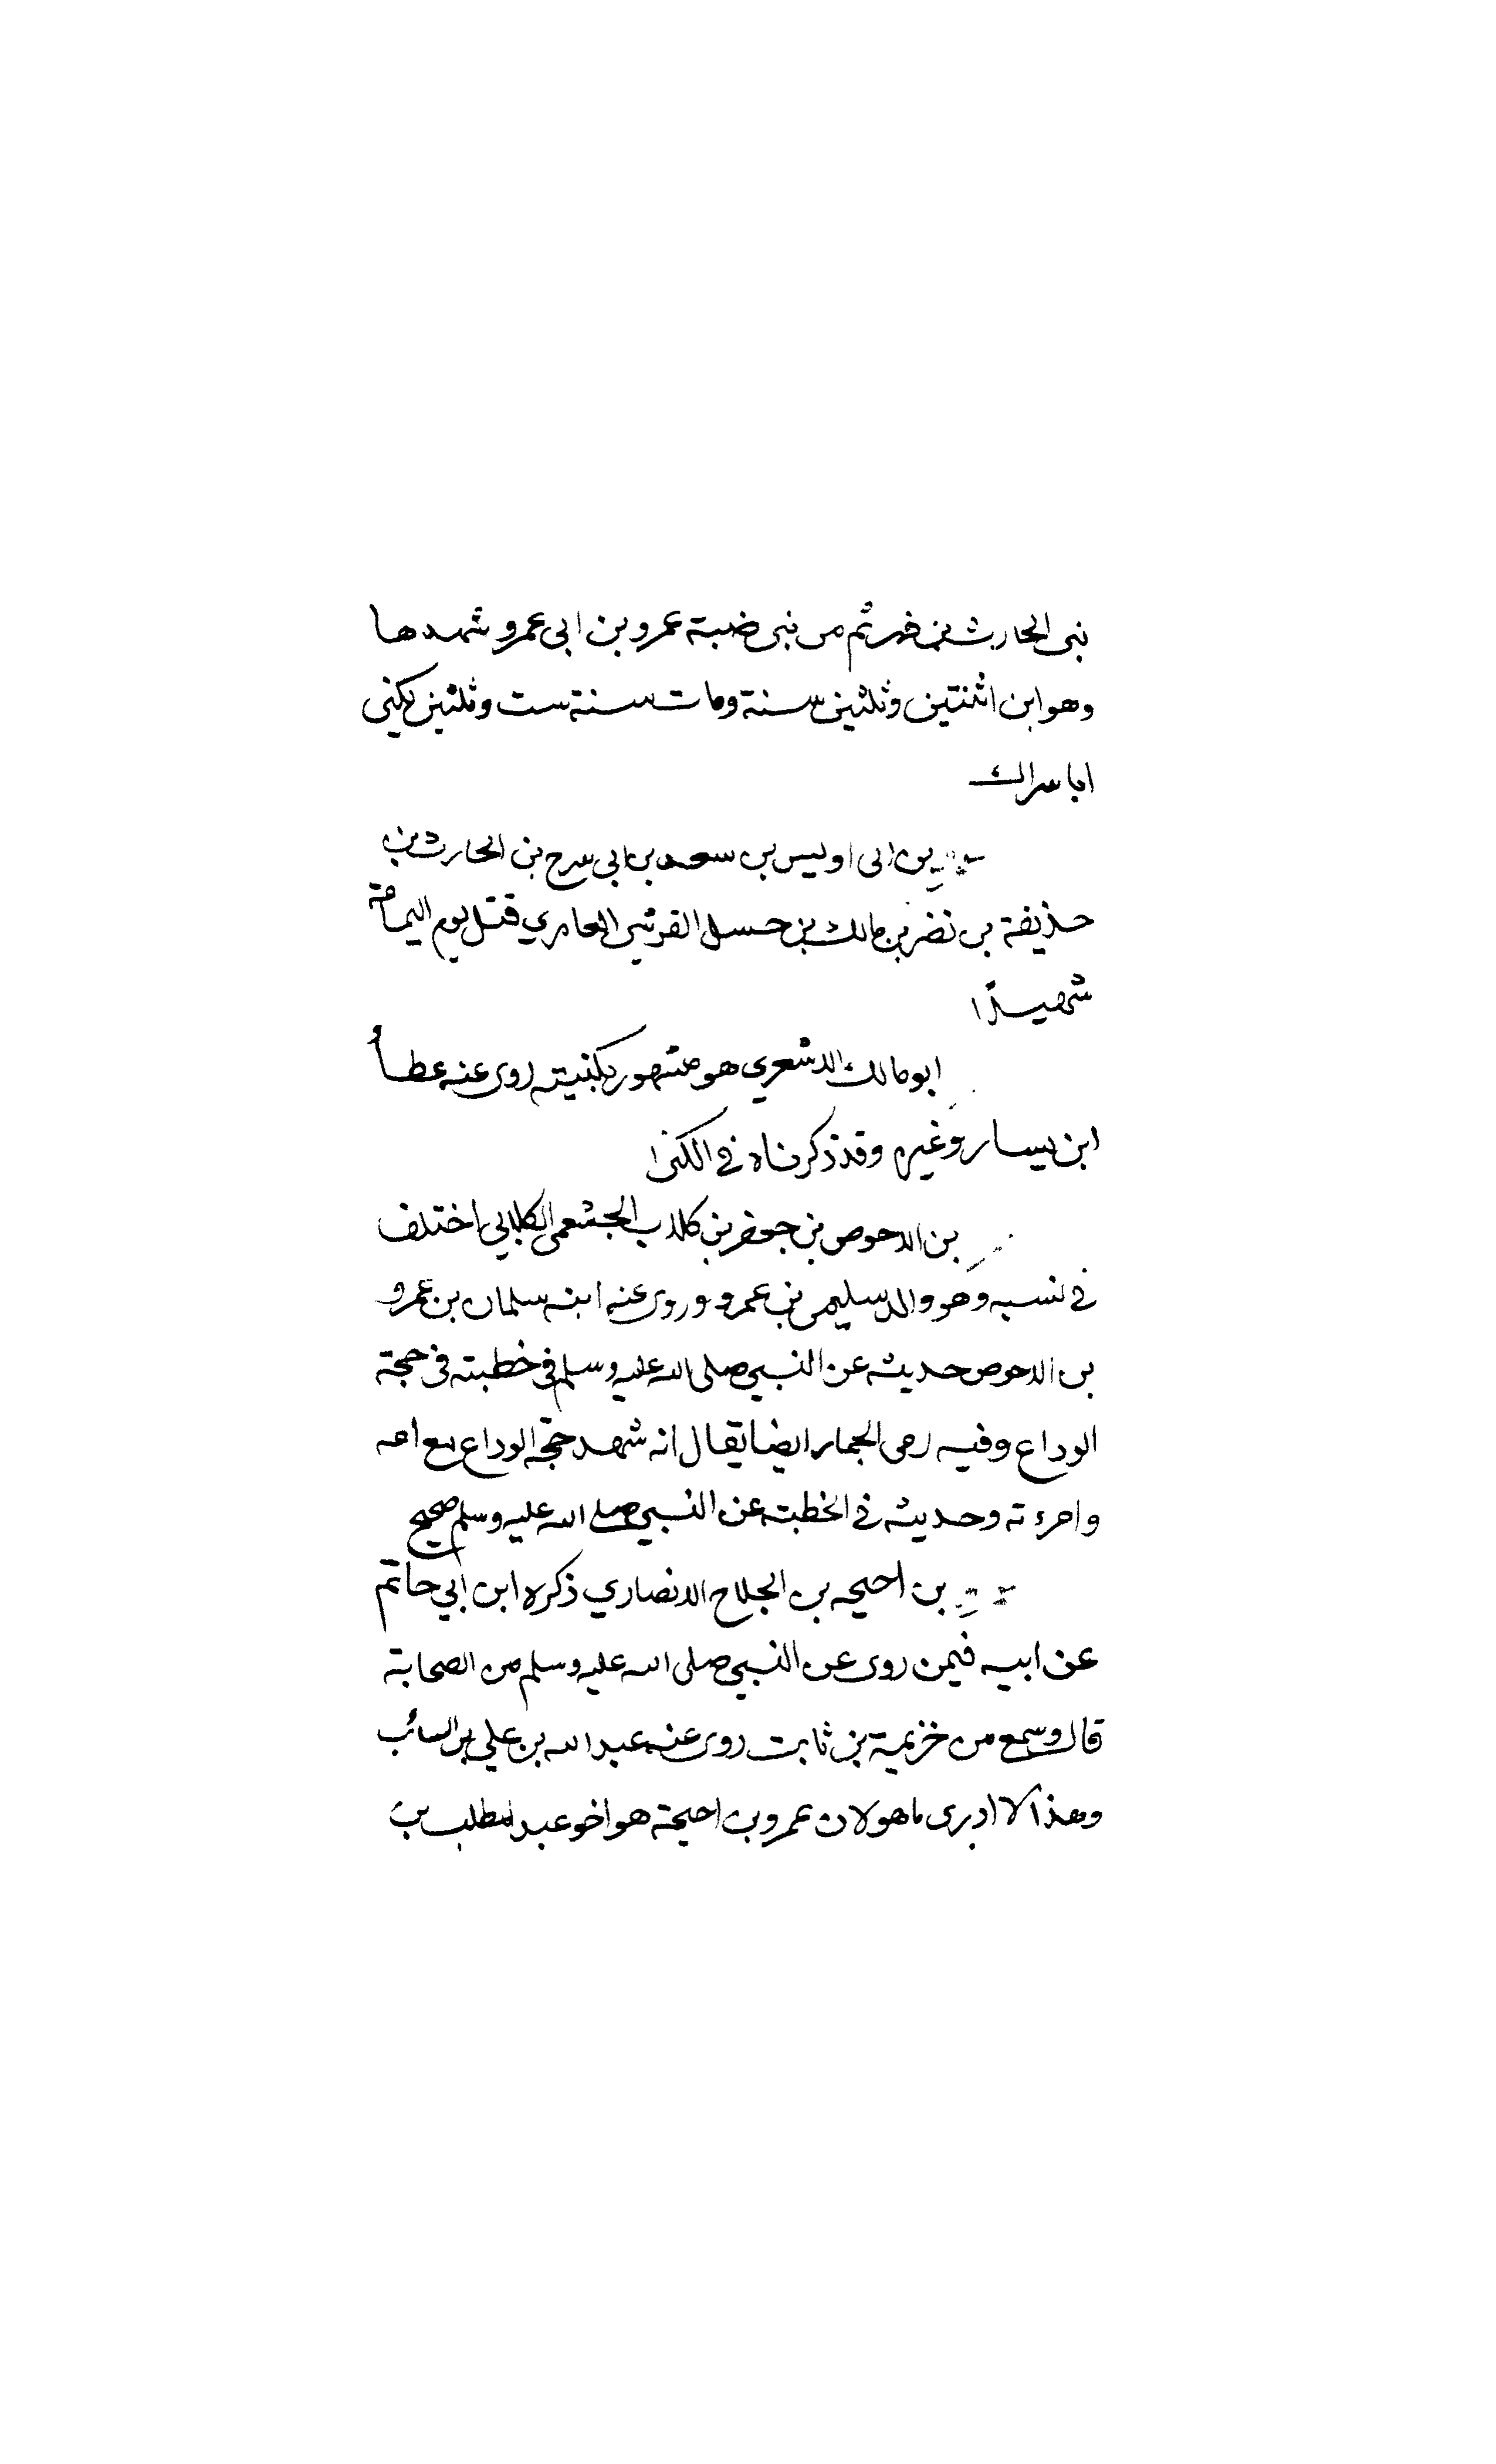 بنى الحارث بن فهر ثم من بنى ضبة عمرو بن ابى عمرو شهدها
وهو ابن اثنتين وثلثين سنة ومات سنة ست وثلثين يكنى
ابا
بن ابى اويس بن سعد بن ابي سرح بن الحارث بن
حذيفة بن نضر بن مالك بن حسل القرشي العامري قتل يوم اليمامة
شهيدًا
ابو مالك الاشعري هو مشهور بكنيته روى عنه عطأ
ابن يسار وغيره وقد ذكرناه في الكنى
بن الاحوص بن جعفر بن كلاب الجشمي الكلابي اختلف
في نسبه وهو والد سليمى بن عمرو وروى عنه ابنه سلمان بن عمرو
بن الاحوص حديثه عن النبي صلى الله عليه وسلم في خطبته في حجة
الوداع وفيه رمى الجمار ايضا يقال انه شهد حجة الوداع مع امه
وامرءته وحديثه في الخطبة عن النبي صلى الله عليه وسلم صحيح
بن احيحه بن الجلاح الانصاري ذكره ابن ابي حاتم
عن ابيه فيمن روى عن النبي صلى الله عليه وسلم من الصحابة
قال وسمع من خزيمة بن ثابت روى عنه عبد الله بن علي بن السائب
وهذا لا ادرى ما هو لان عمرو بن احيحة هو اخو عبد المطلب بن